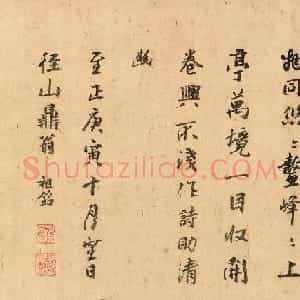 鰲峰〻上
亭萬境一目收開
卷興不淺作詩助清
幽
至正庚寅十月望日
徑山鼎翁祖銘
Shufaziliao.com